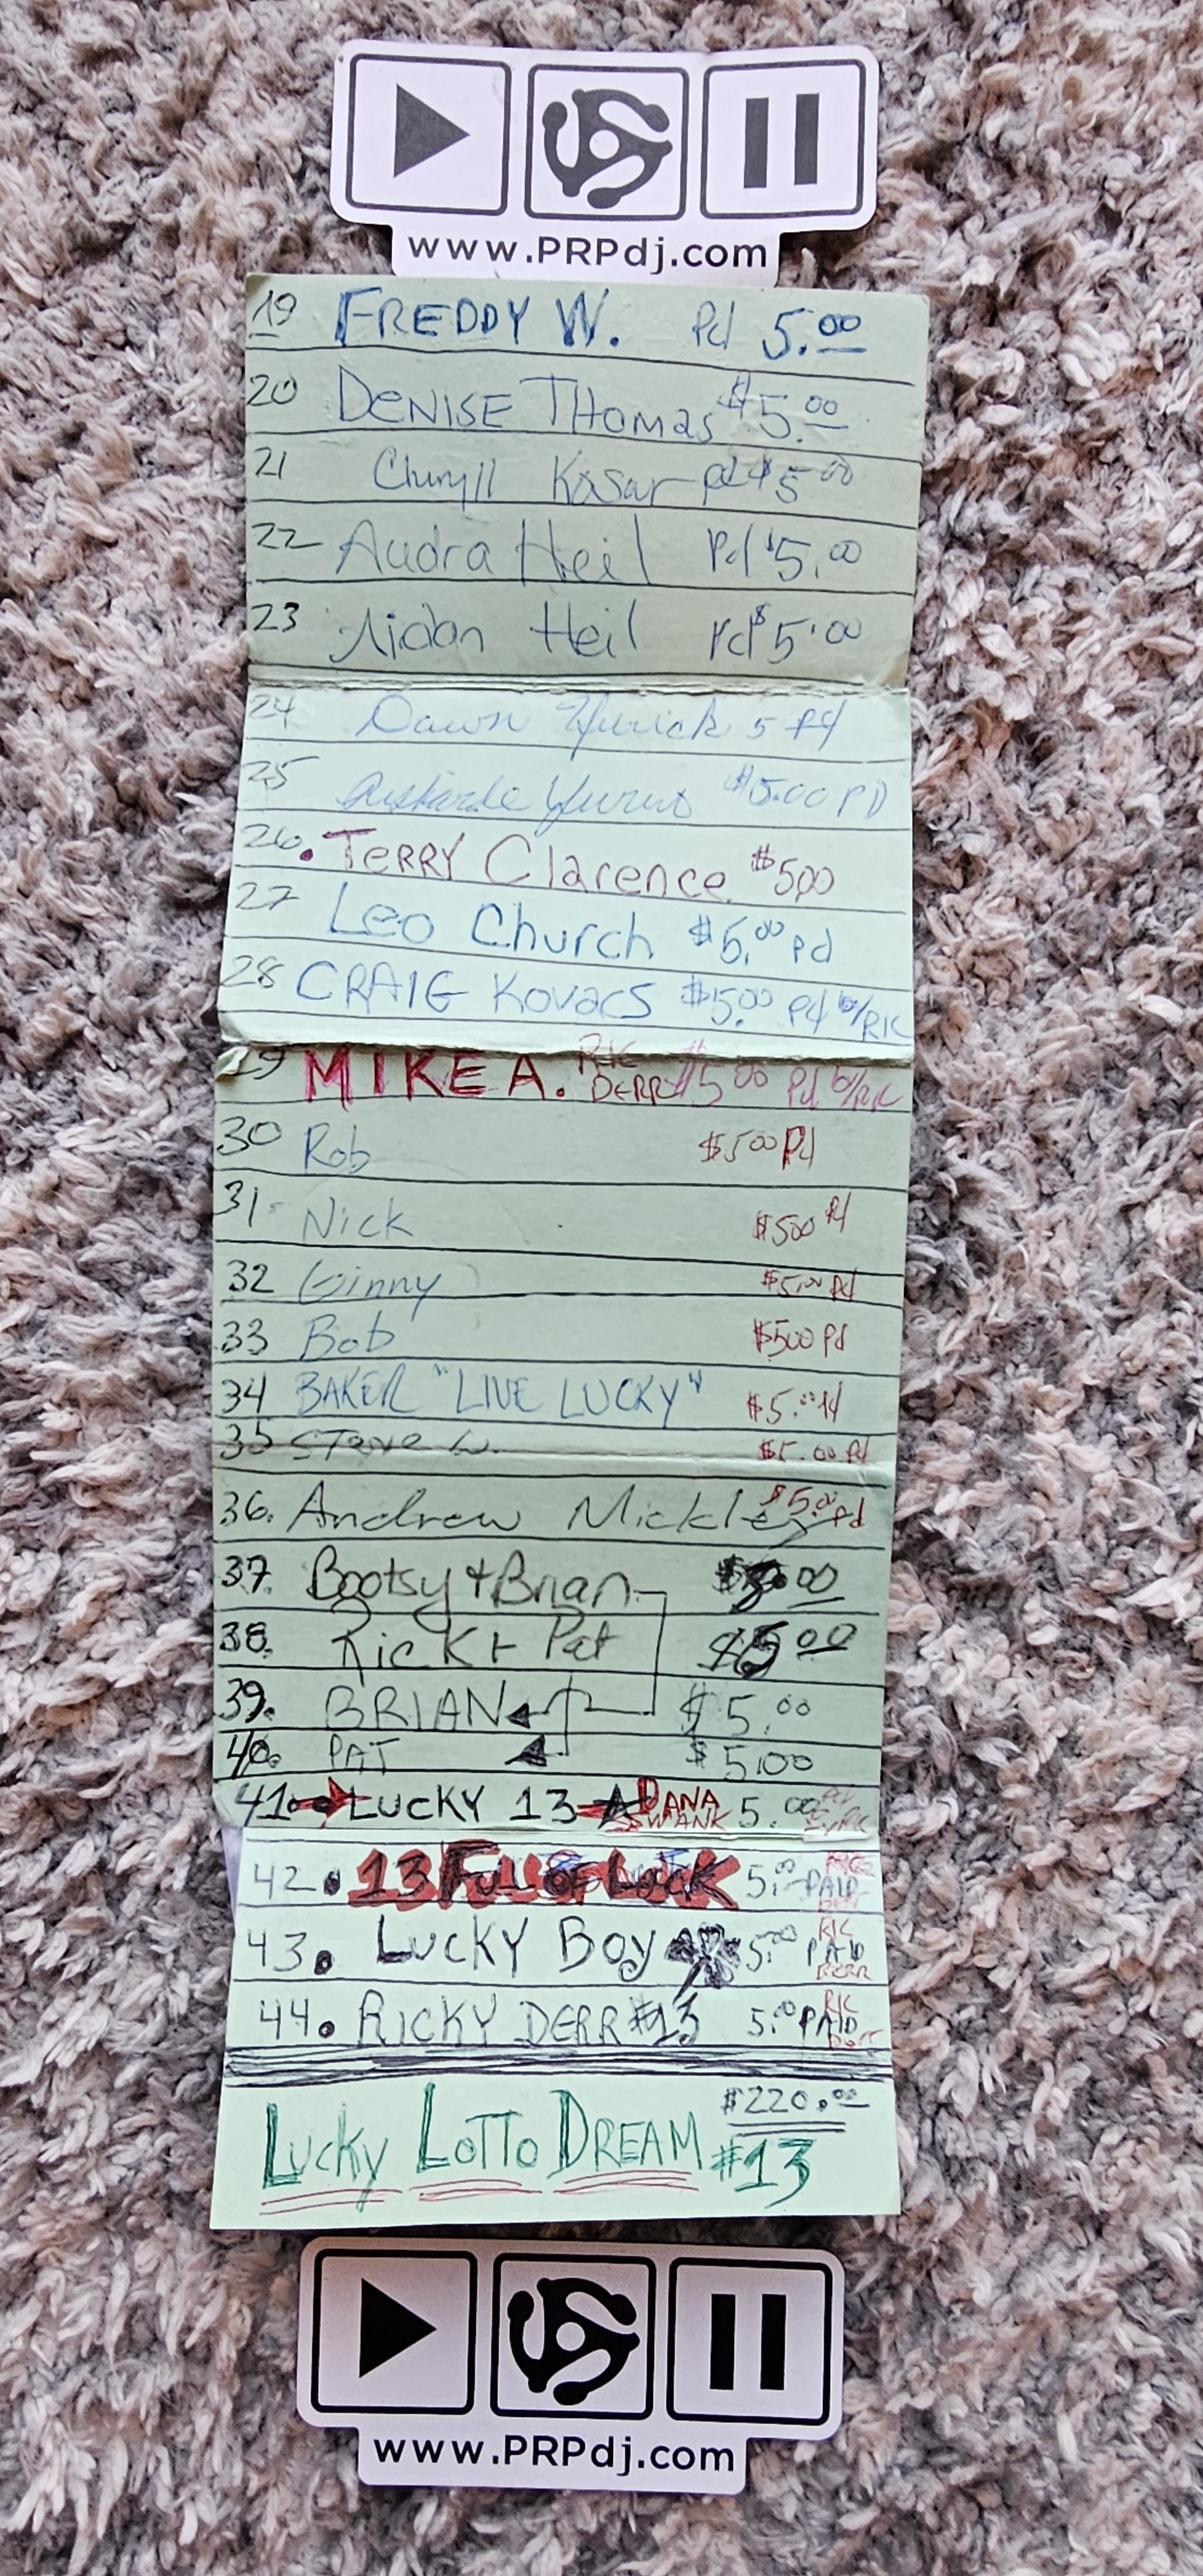 www.PRPdj.com
19 FREDDY W. Pd 5.00
20 DENISE THomas $5.00
21 Kosar pd $5.00
22 Audra Heil Pd $5.00
23 Aidan Heil Pd $5.00
24 Dawn 5 Pd
25 $5.00 PD
26. TERRY Clarence $500
27 Leo Church $5.00 Pd
28 CRAIG KOVACS $5.00 Pd by/RIC
29 MIKE A. RIC DERR $5.00 Pd by/RIC
30 Rob $500 Pd
31 Nick $500 Pd
32 Ginny $5.00 Pd
33 Bob $500 Pd
34 BAKER "LIVE LUCKY" $5.00 Pd
35 STEVE W. $5.00 Pd
36. Andrew Mickley $5.00 Pd
37. Bootsy + Brian $5.00
38. Rick + Pat $5.00
39. BRIAN $5.00
40. PAT $5.00
41 LUCKY 13 DANA SWANK 5.00
42. 13 FULL OF LUCK 5.00 PAID
43. LUCKY BOY 5.00 RIC PAID DERR
44. RICKY DERR #13 5.00 RIC PAID DERR
$220.00
LUCKY LOTTO DREAM #13
www.PRPdj.com